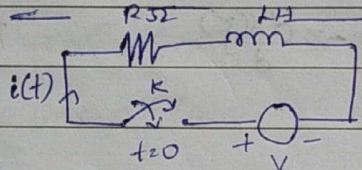 RΩ LH
i(t) K
t=0 + V -